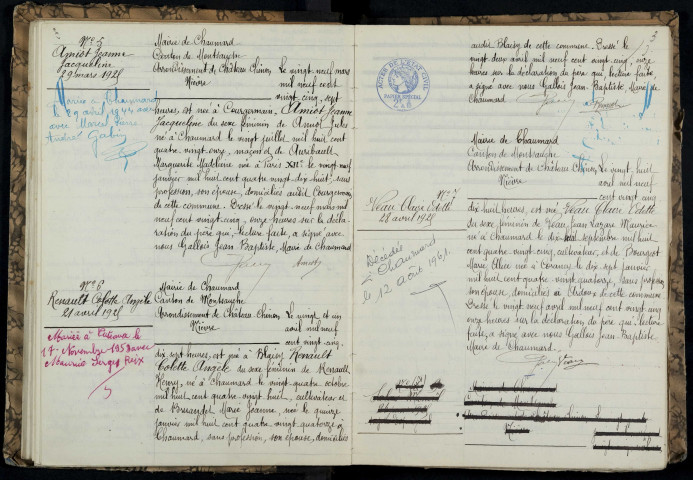 N° 5
Amiot Jeanne
Jacqueline
29 mars 1925
Mariée à Chaumard
le 29 avril 1944
avec Marcel
Gabin
Mairie de Chaumard
Canton de Montsauche
Arrondissement de Château Chinon
Nièvre
Le vingt neuf mars
mil neuf cent
vingt cinq, sept
heures, est née à Courgermain Amiot Jeanne
Jacqueline du sexe féminin de Amiot Jules
né à Chaumard le vingt juillet mil huit cent
quatre vingt onze, maçon et de
Marguerite Madeleine née à Paris XIIe le vingt neuf
janvier mil huit cent quatre vingt dix huit, sans
profession, son épouse, domiciliés audit Courgermain
de cette commune. Dressé le vingt neuf mars mil
neuf cent vingt cinq, onze heures sur la décla-
ration du père qui, lecture faite, a signé avec
nous Gallois Jean Baptiste, Maire de Chaumard
Amiot
N° 6
Renault Colette Angèle
21 avril 1925
Mariée à Cationa le
17 Novembre 1953 avec
Maurice Serges Reix
Mairie de Chaumard
Canton de Montsauche
Arrondissement de Château Chinon
Nièvre
Le vingt et un
avril mil neuf
cent vingt cinq
dix sept heures, est née à Blaisy Renault
Colette Angèle du sexe féminin de Renault
Henry, né à Chaumard le vingt quatre octobre
mil huit cent quatre vingt huit, cultivateur et
de Marie Jeanne, née le quinze
janvier mil huit cent quatre vingt quatorze à
Chaumard, sans profession, son épouse, domiciliés
audit Blaisy de cette commune. Dressé le
vingt deux avril mil neuf cent vingt cinq, onze
heures sur la déclaration du père qui, lecture faite,
a signé avec nous Gallois Jean Baptiste, Maire de
Chaumard.
ACTES DE L'ETAT CIVIL
PAPIER SPECIAL
N° 7
Veau Claire Odette
28 avril 1925
Décédée
à Chaumard
le 12 août 1961.
Mairie de Chaumard
Canton de Montsauche
Arrondissement de Château Chinon
Nièvre
Le vingt huit
avril mil neuf
cent vingt cinq
dix huit heures, est née Veau Claire Odette
du sexe féminin de Veau Jean Lazare Maurice
né à Chaumard le dix septembre mil huit
cent quatre vingt cinq, cultivateur, et de Bourgot
Marie Alice née à Corancy le dix sept janvier
mil huit cent quatre vingt quatorze, sans profession
son épouse, domiciliés à de cette commune
Dressé le vingt neuf avril mil neuf cent vingt cinq
onze heures sur la déclaration du père qui, lecture
faite, a signé avec nous Gallois Jean Baptiste
Maire de Chaumard.
Veau